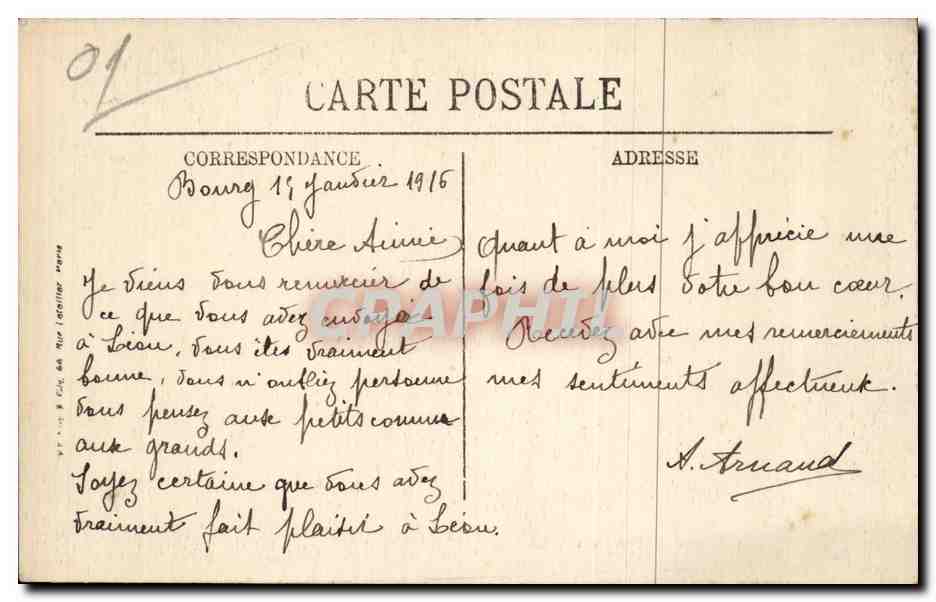 01
CARTE POSTALE
CORRESPONDANCE
Bourg 15 Janvier 1916
Chère Aimée
Je viens vous remercier de
ce que vous avez envoyé
à Léon, vous êtes vraiment
bonne, vous n'oubliez personne
vous pensez aux petits comme
aux grands.
Soyez certaine que vous avez
vraiment fait plaisir à Léon.
ADRESSE
Quant à moi j'apprécie une
fois de plus votre bon cœur.
Recevez avec mes remerciements
mes sentiments affectueux.
A. Arnaud
CPAPHIL